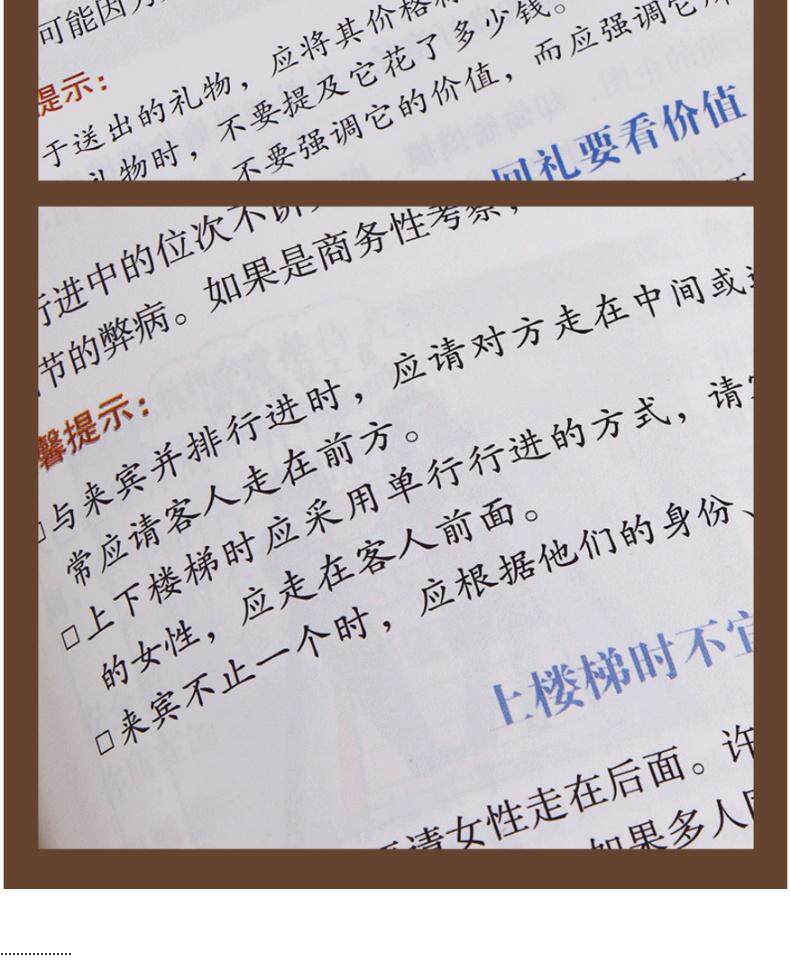 可能因
提示：
于送出的礼物，应将其价格
礼物时，不要提及它花了多少钱。
不要强调它的价值，而应强调它
回礼要看价值
行进中的位次不
节的弊病。如果是商务性考察，
馨提示：
□与来宾并排行进时，应请对方走在中间或
常应请客人走在前方。
□上下楼梯时应采用单行行进的方式，请
的女性，应走在客人前面。
□来宾不止一个时，应根据他们的身份、
上楼梯时不宜
请女性走在后面。许
如果多人